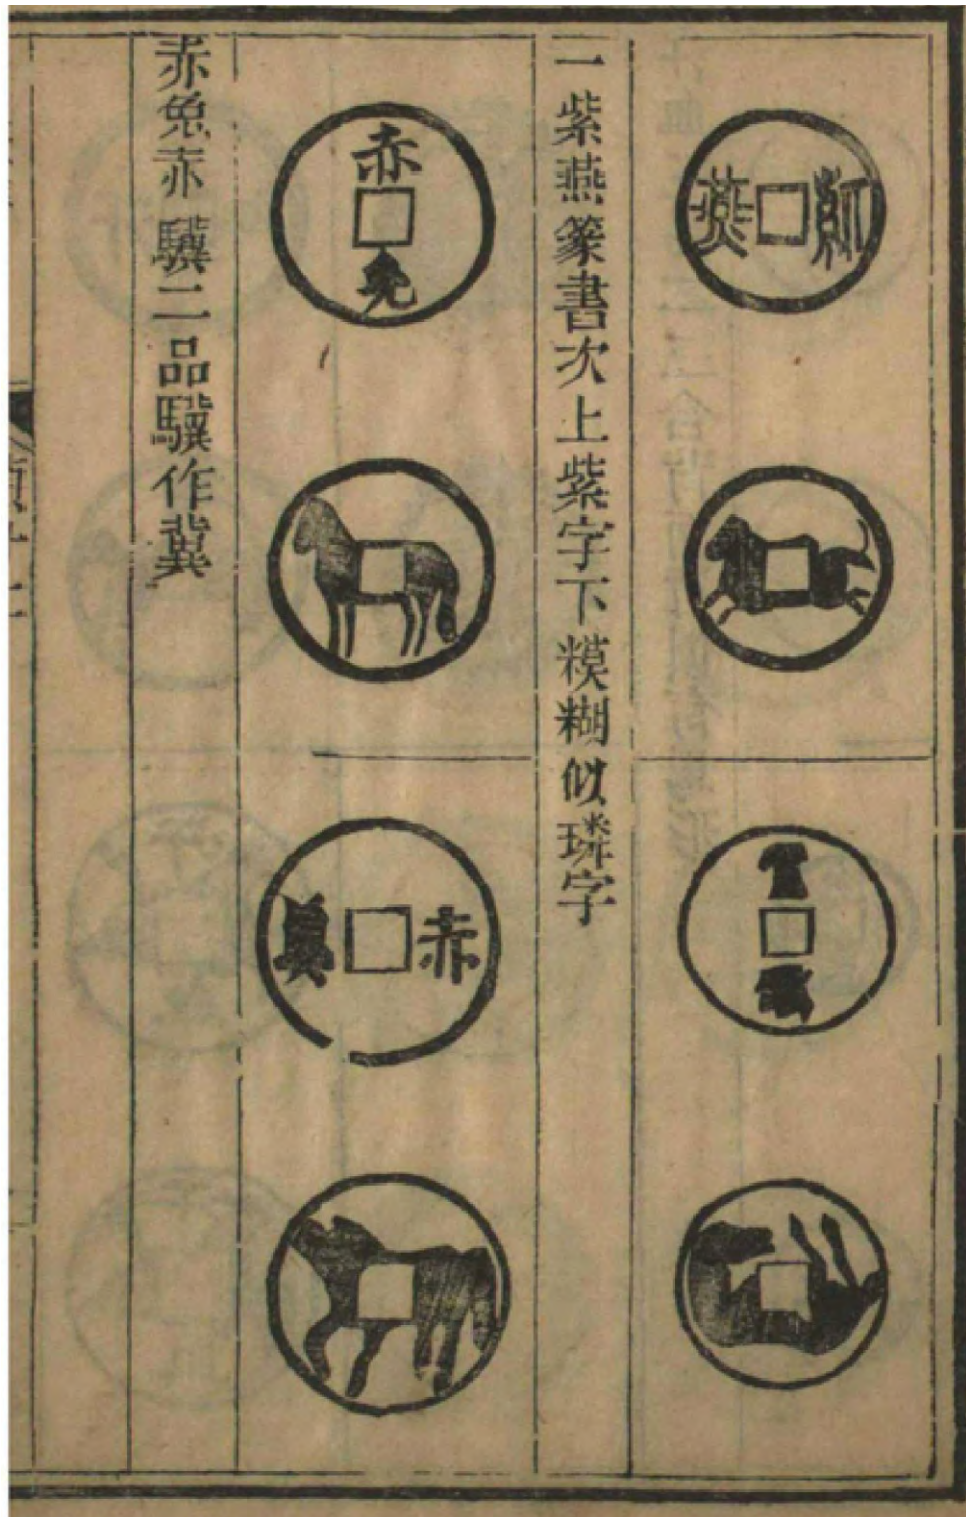 燕
一紫燕篆書次上紫字下糢糊似璘字
赤兔
赤兾
赤兔赤驥二品驥作兾